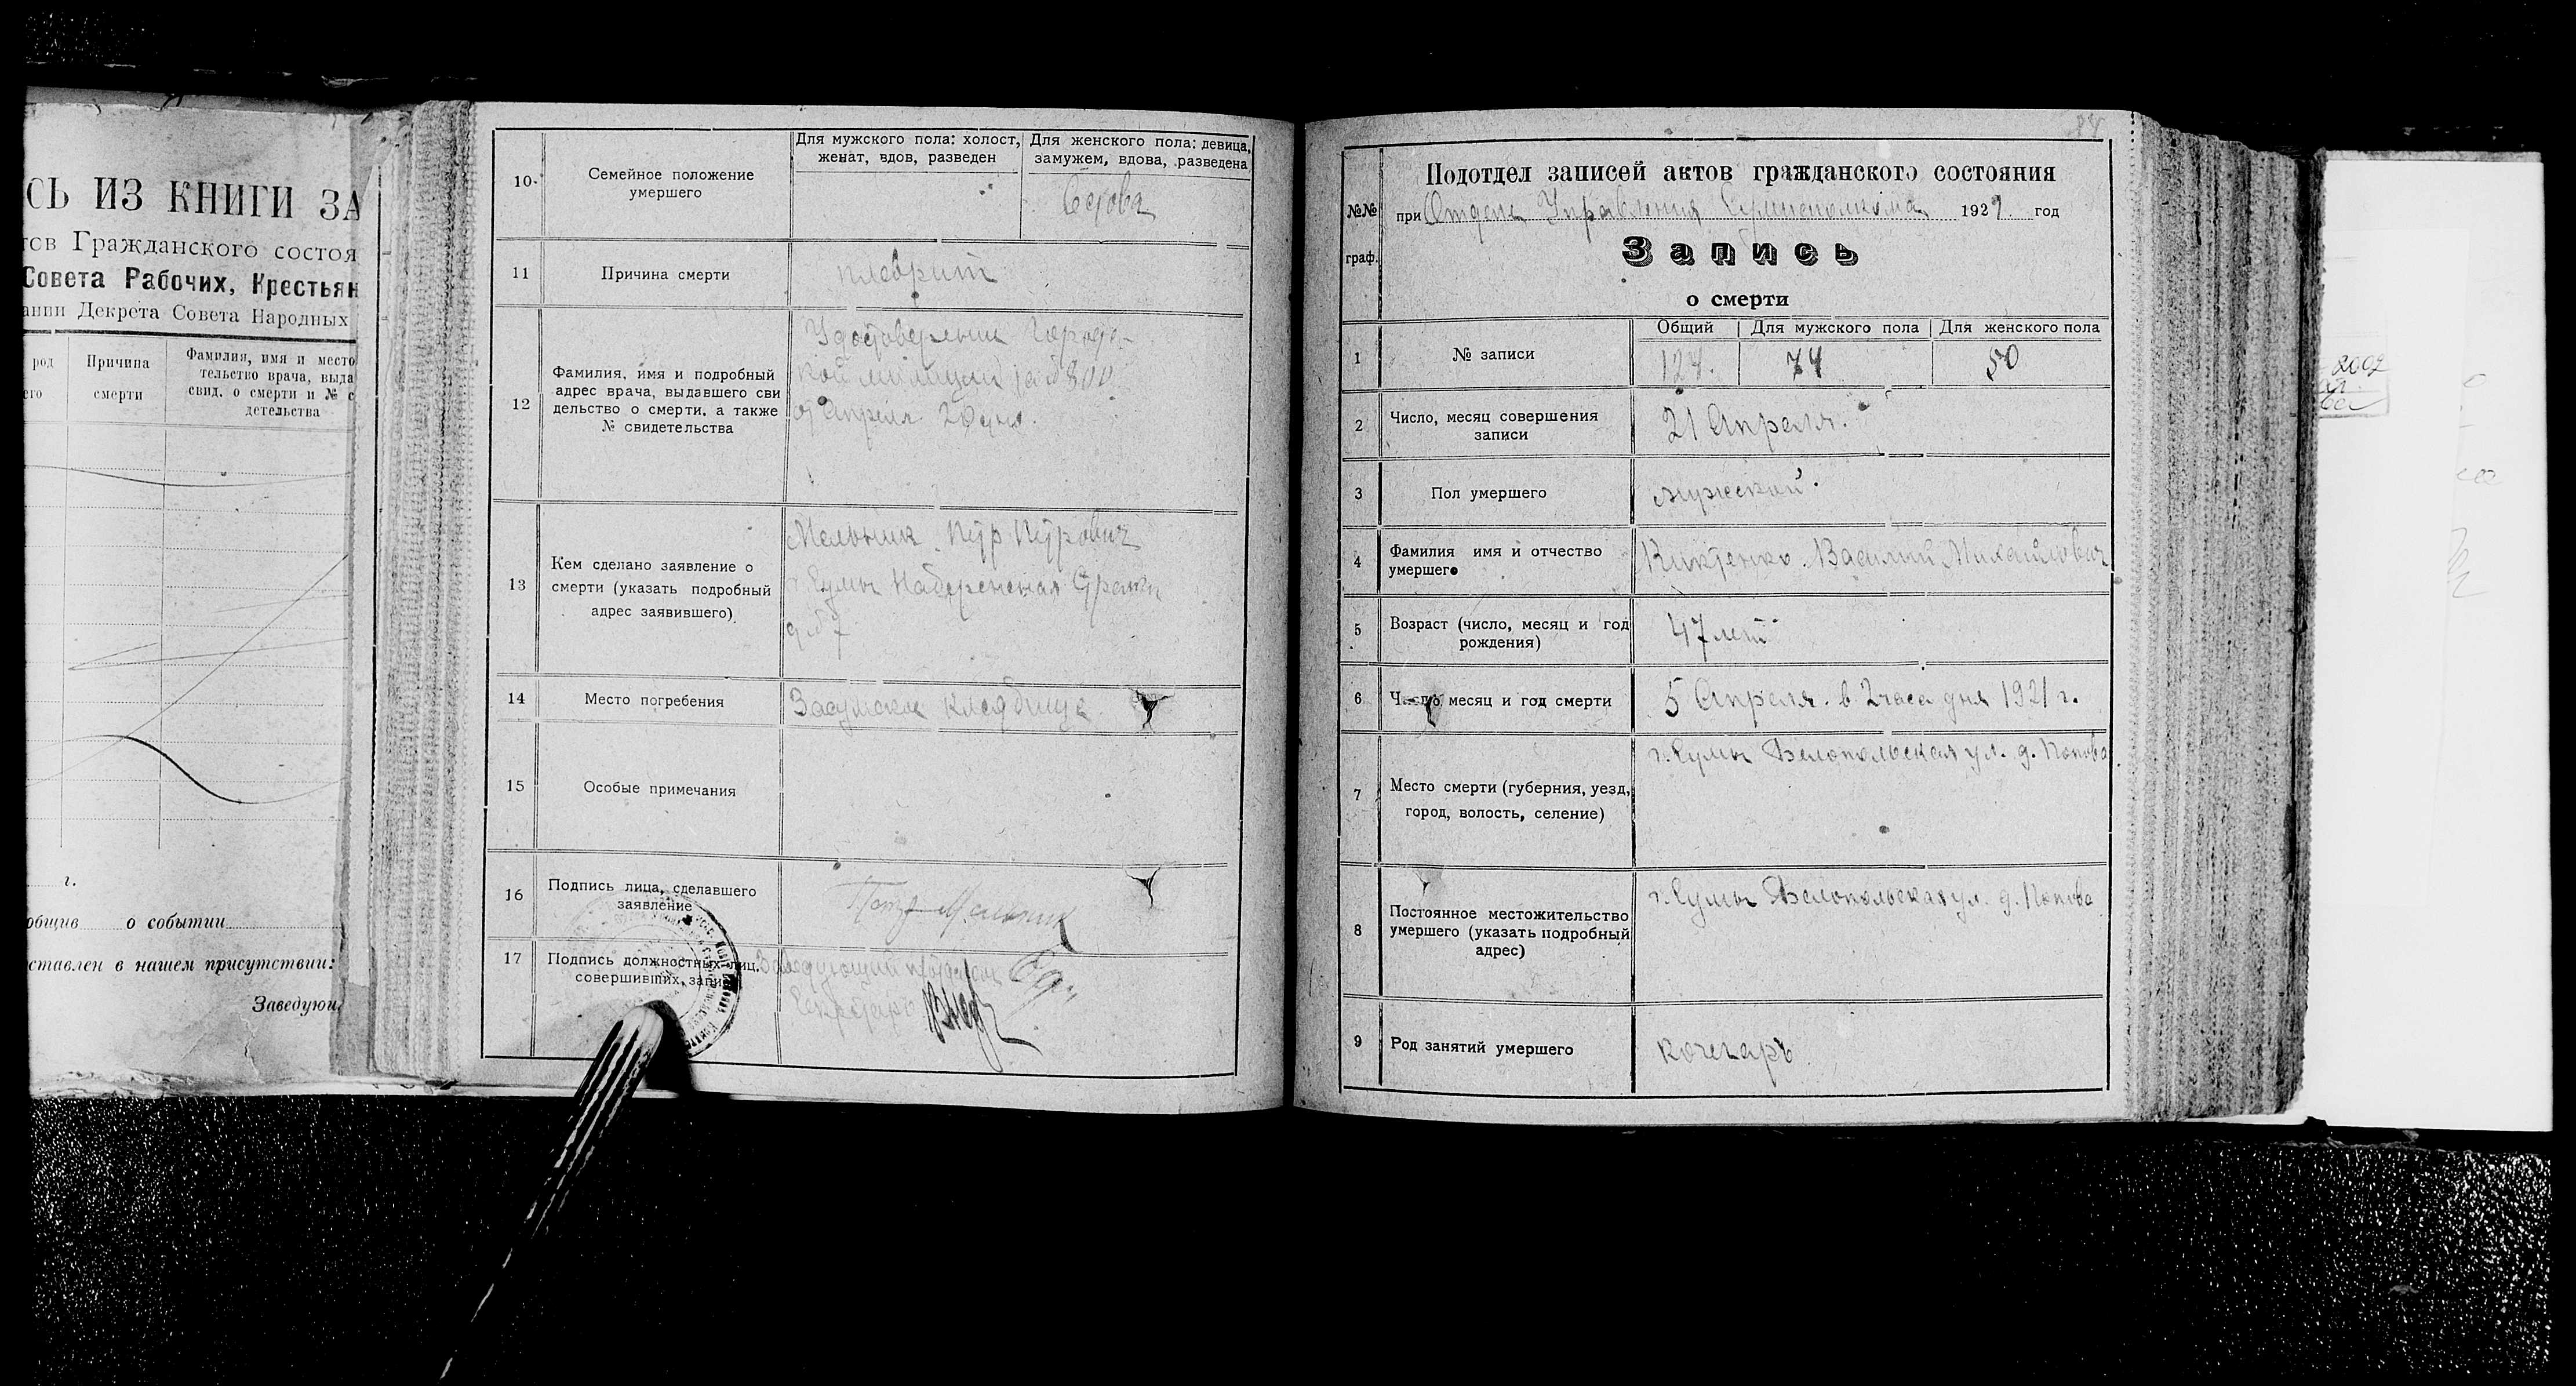 СЬ ИЗ КНИГИ ЗА
тов Гражданского состоя
Совета Рабочих, Крестьян
ании Декрета Совета Народных
род
его
Причина
смерти
Фамилия, имя и место
тельство врача, выда
свид. о смерти и № с
детельства
г.
общив о событии
ставлен в нашем присутствии:
Заведующ
10.
Семейное положение
умершего
Для мужского пола: холост,
женат, вдов, разведен
Для женского пола: девица,
замужем, вдова, разведена
11
Причина смерти
плеврит
12
Фамилия, имя и подробный
адрес врача, выдавшего сви
дельство о смерти, а также
№ свидетельства
Удостоверение
милиции за № 800
от Апреля 20 дня.
13
Кем сделано заявление о
смерти (указать подробный
адрес заявившего)
Мельник Петр Петрович
г. Сумы Набережная Стрелки
д № 7
14
Место погребения
Засумское кладбище
15
Особые примечания
16
Подпись лица, сделавшего
заявление
Петр Мельник
17
Подпись должностных лиц,
совершивших запис
Заведующий п/отделом
Секретарь
Подотдел записей актов гражданского состояния
№№
граф.
при Отделе Управления Сумисполкома 1921 год
Запись
о смерти
1
№ записи
Общий
Для мужского пола
Для женского пола
124.
74
50
2
Число, месяц совершения
записи
21 Апреля.
3
Пол умершего
мужской.
4
Фамилия имя и отчество
умершего
Киктенко Василий Михайлович
5
Возраст (число, месяц и год
рождения)
47 лет
6
Число, месяц и год смерти
5 Апреля. в 2 часа дня 1921 г.
7
Место смерти (губерния, уезд,
город, волость, селение)
г. Сумы Белопольская ул. д. Попова
8
Постоянное местожительство
умершего (указать подробный
адрес)
г. Сумы Белопольская ул. д. Попова
9
Род занятий умершего
кочегаръ